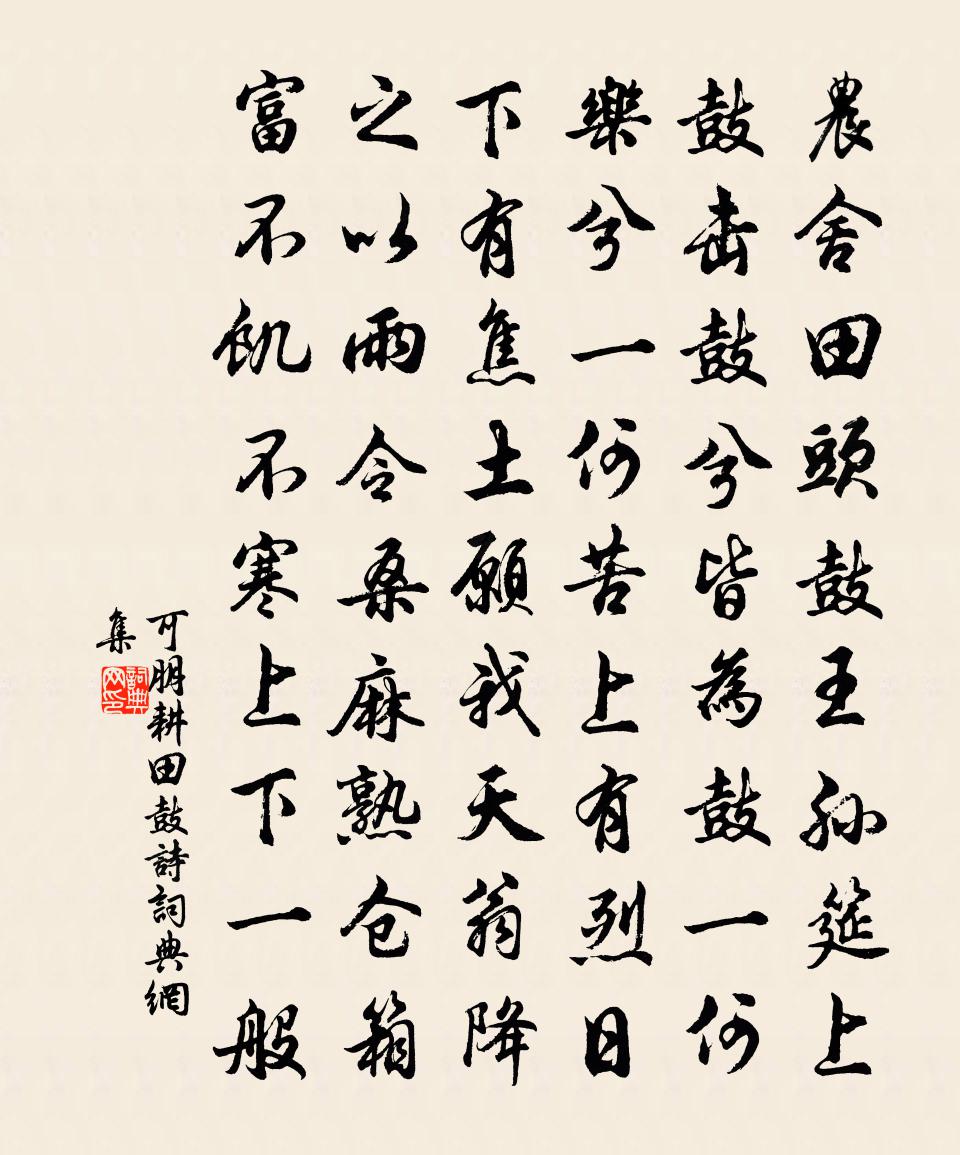 農舍田頭鼓王孫筵上
鼓击鼓兮皆為鼓一何
樂兮一何苦上有烈日
下有焦土願我天翁降
之以雨令桑麻熟仓箱
富不飢不寒上下一般
可朋耕田鼓詩詞典網
集
詞典
网印